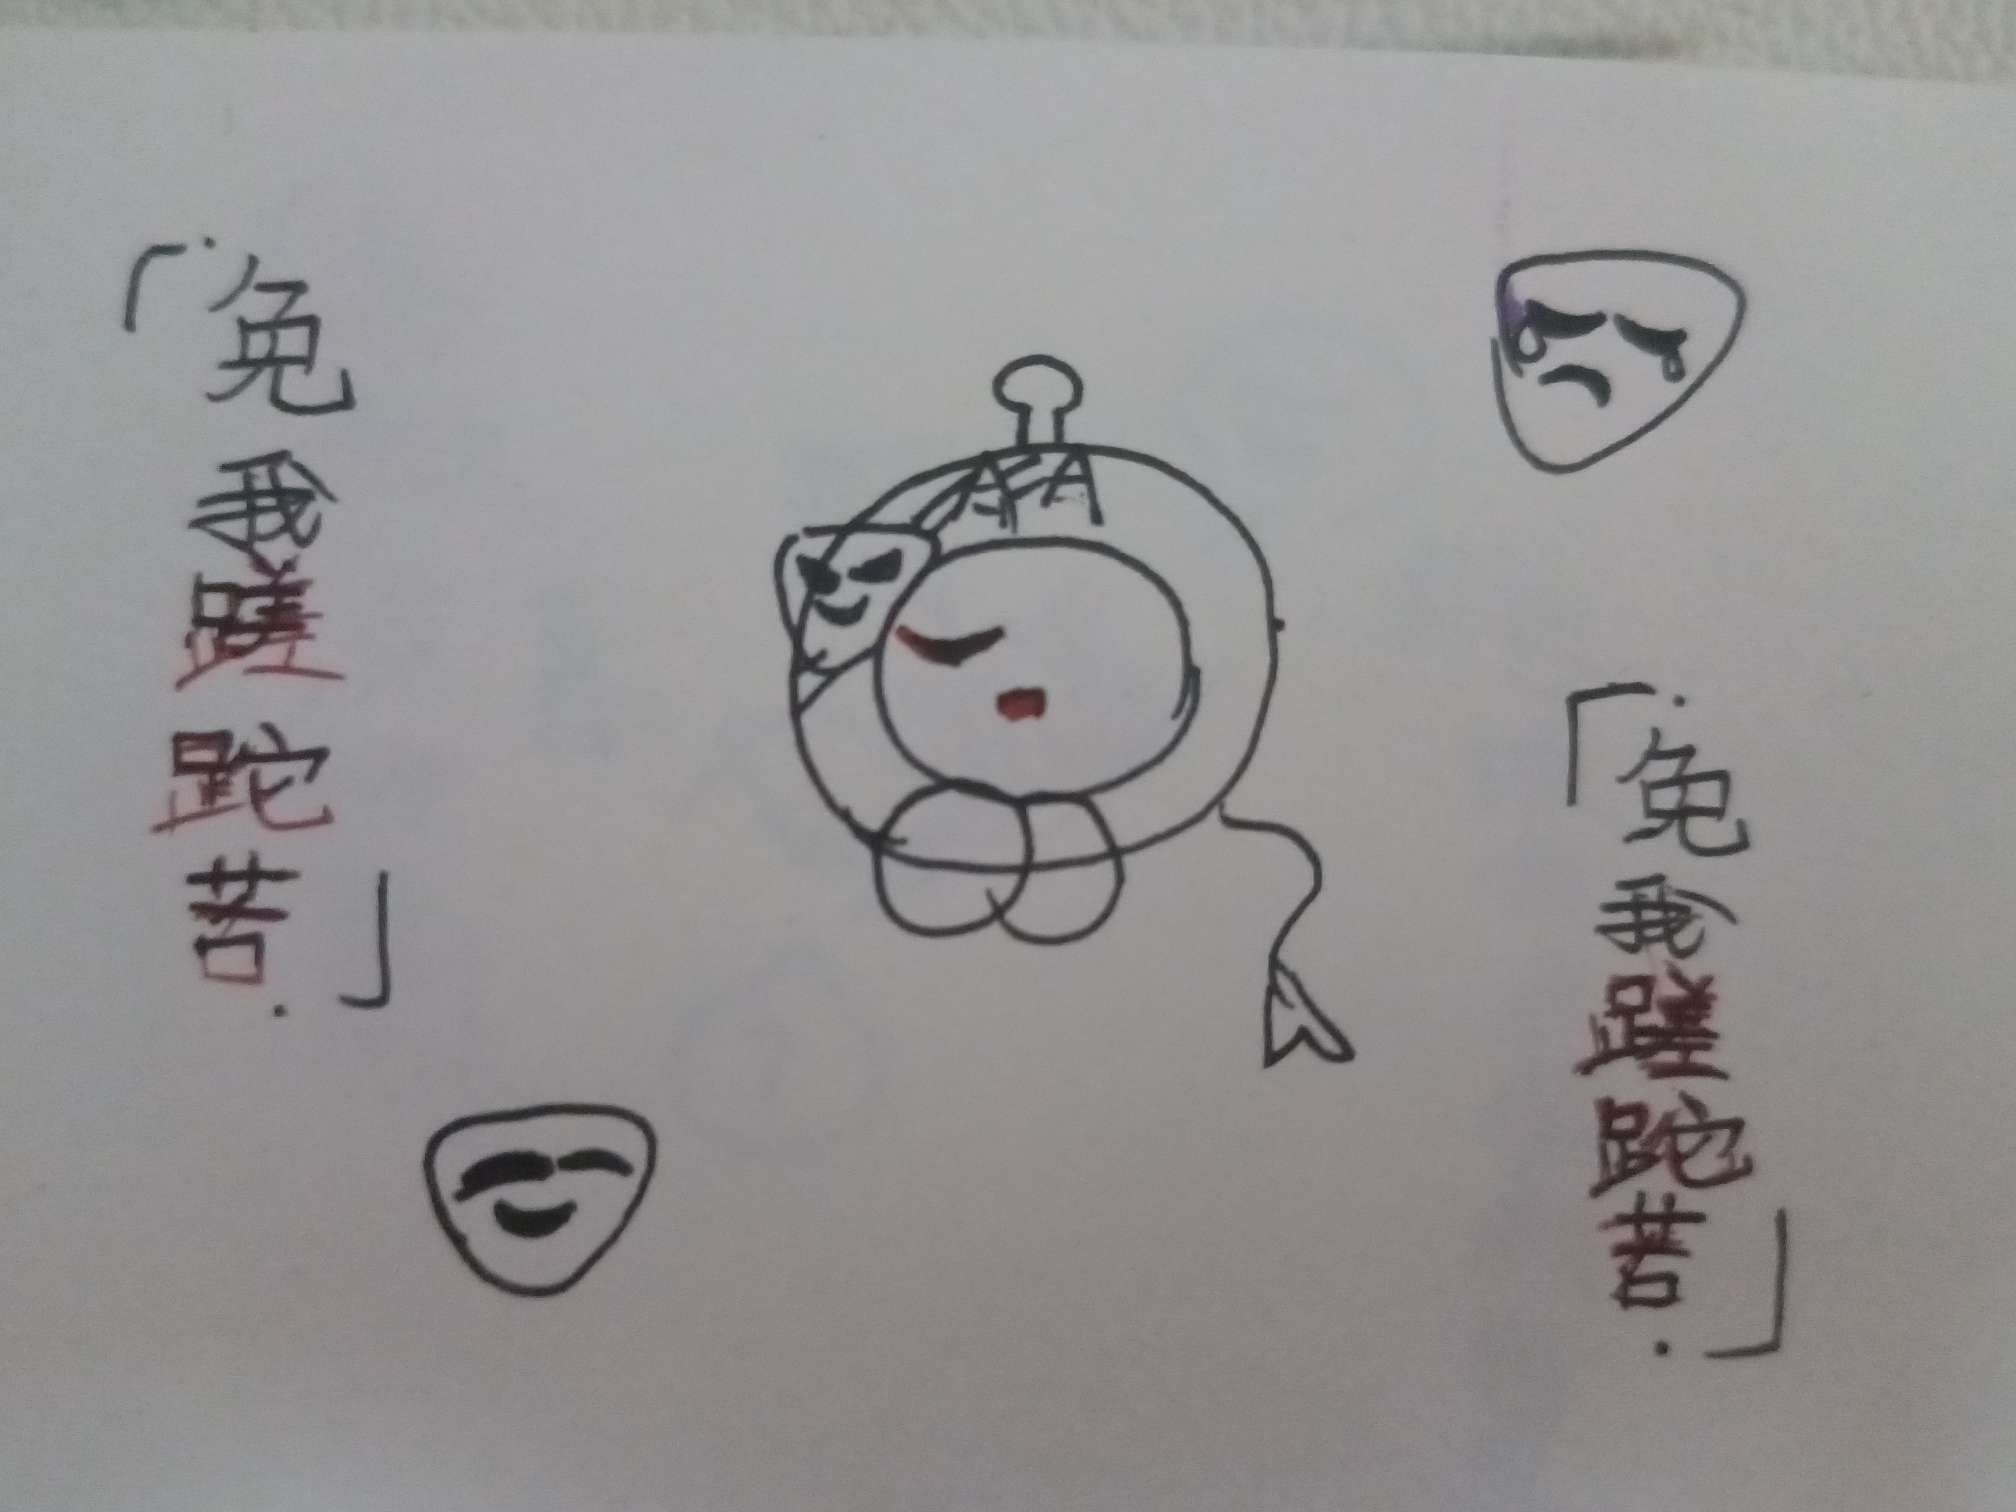 「免我蹉跎苦」
AFA
「免我蹉跎苦」